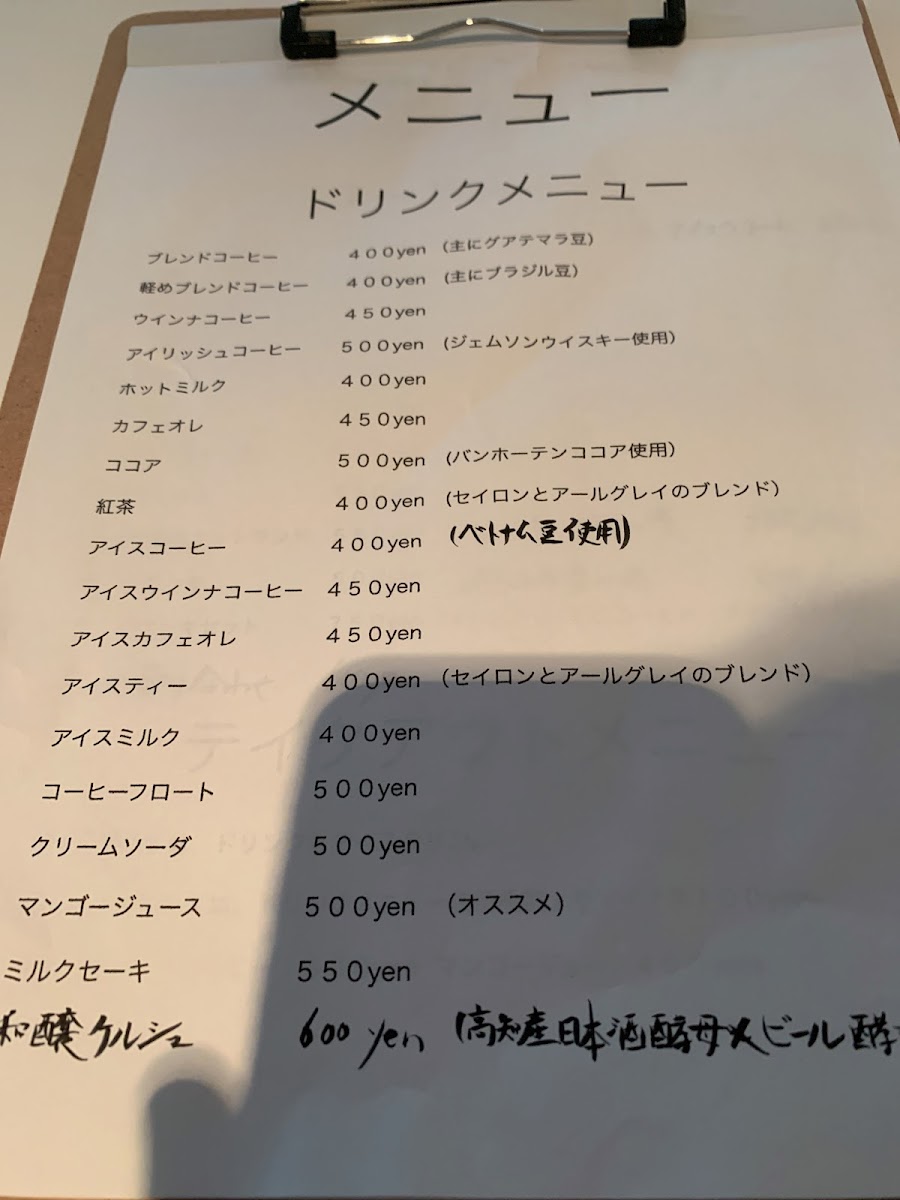 メニュー
ドリンクメニュー
ブレンドコーヒー 400yen (主にグアテマラ豆)
軽めブレンドコーヒー 400yen (主にブラジル豆)
ウインナコーヒー 450yen
アイリッシュコーヒー 500yen (ジェムソンウイスキー使用)
ホットミルク 400yen
カフェオレ 450yen
ココア 500yen (バンホーテンココア使用)
紅茶 400yen (セイロンとアールグレイのブレンド)
アイスコーヒー 400yen (ベトナム豆使用)
アイスウインナコーヒー 450yen
アイスカフェオレ 450yen
アイスティー 400yen (セイロンとアールグレイのブレンド)
アイスミルク 400yen
コーヒーフロート 500yen
クリームソーダ 500yen
マンゴージュース 500yen (オススメ)
ミルクセーキ 550yen
和醸ケルシュ 600 yen (高知産日本酒酵母×ビール酵